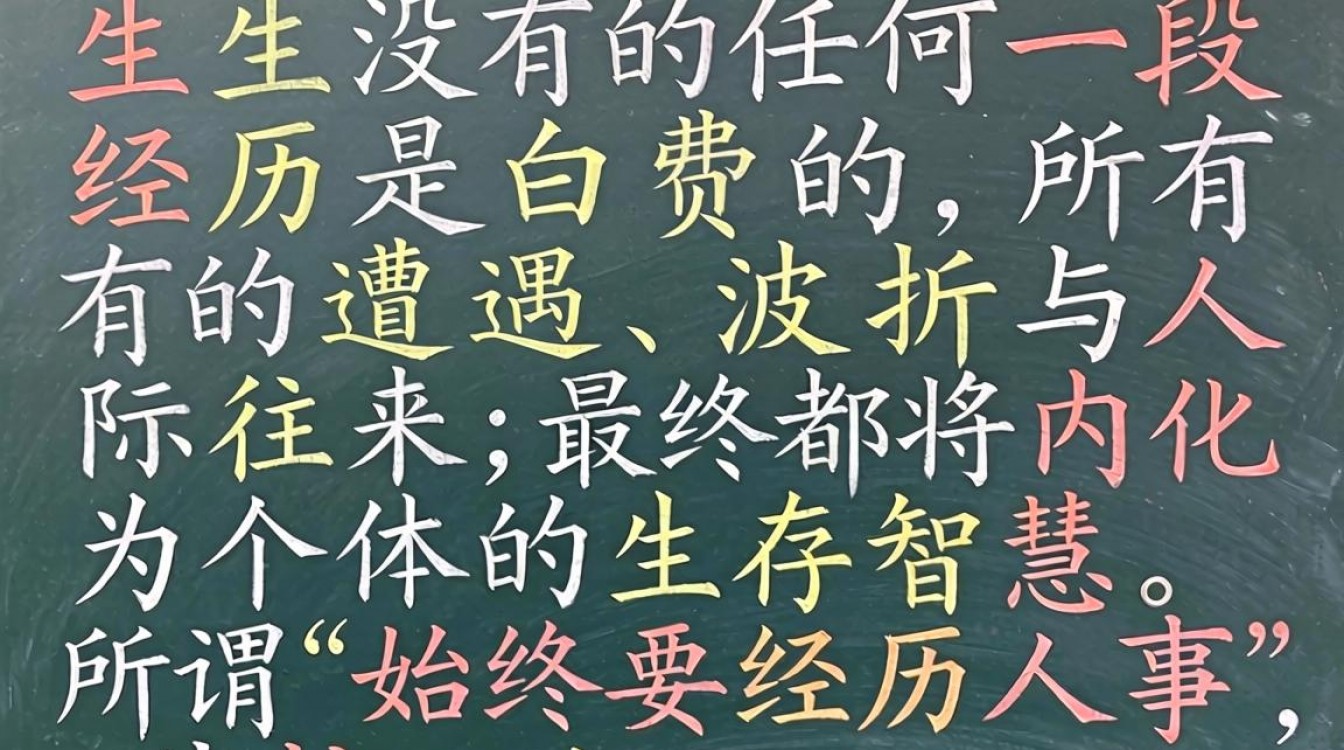 生生没有的任何一段
经历是白费的，所有
有的遭遇、波折与人
际往来；最终都将内化
为个体的生存智慧。
所谓“始终要经历人事”，